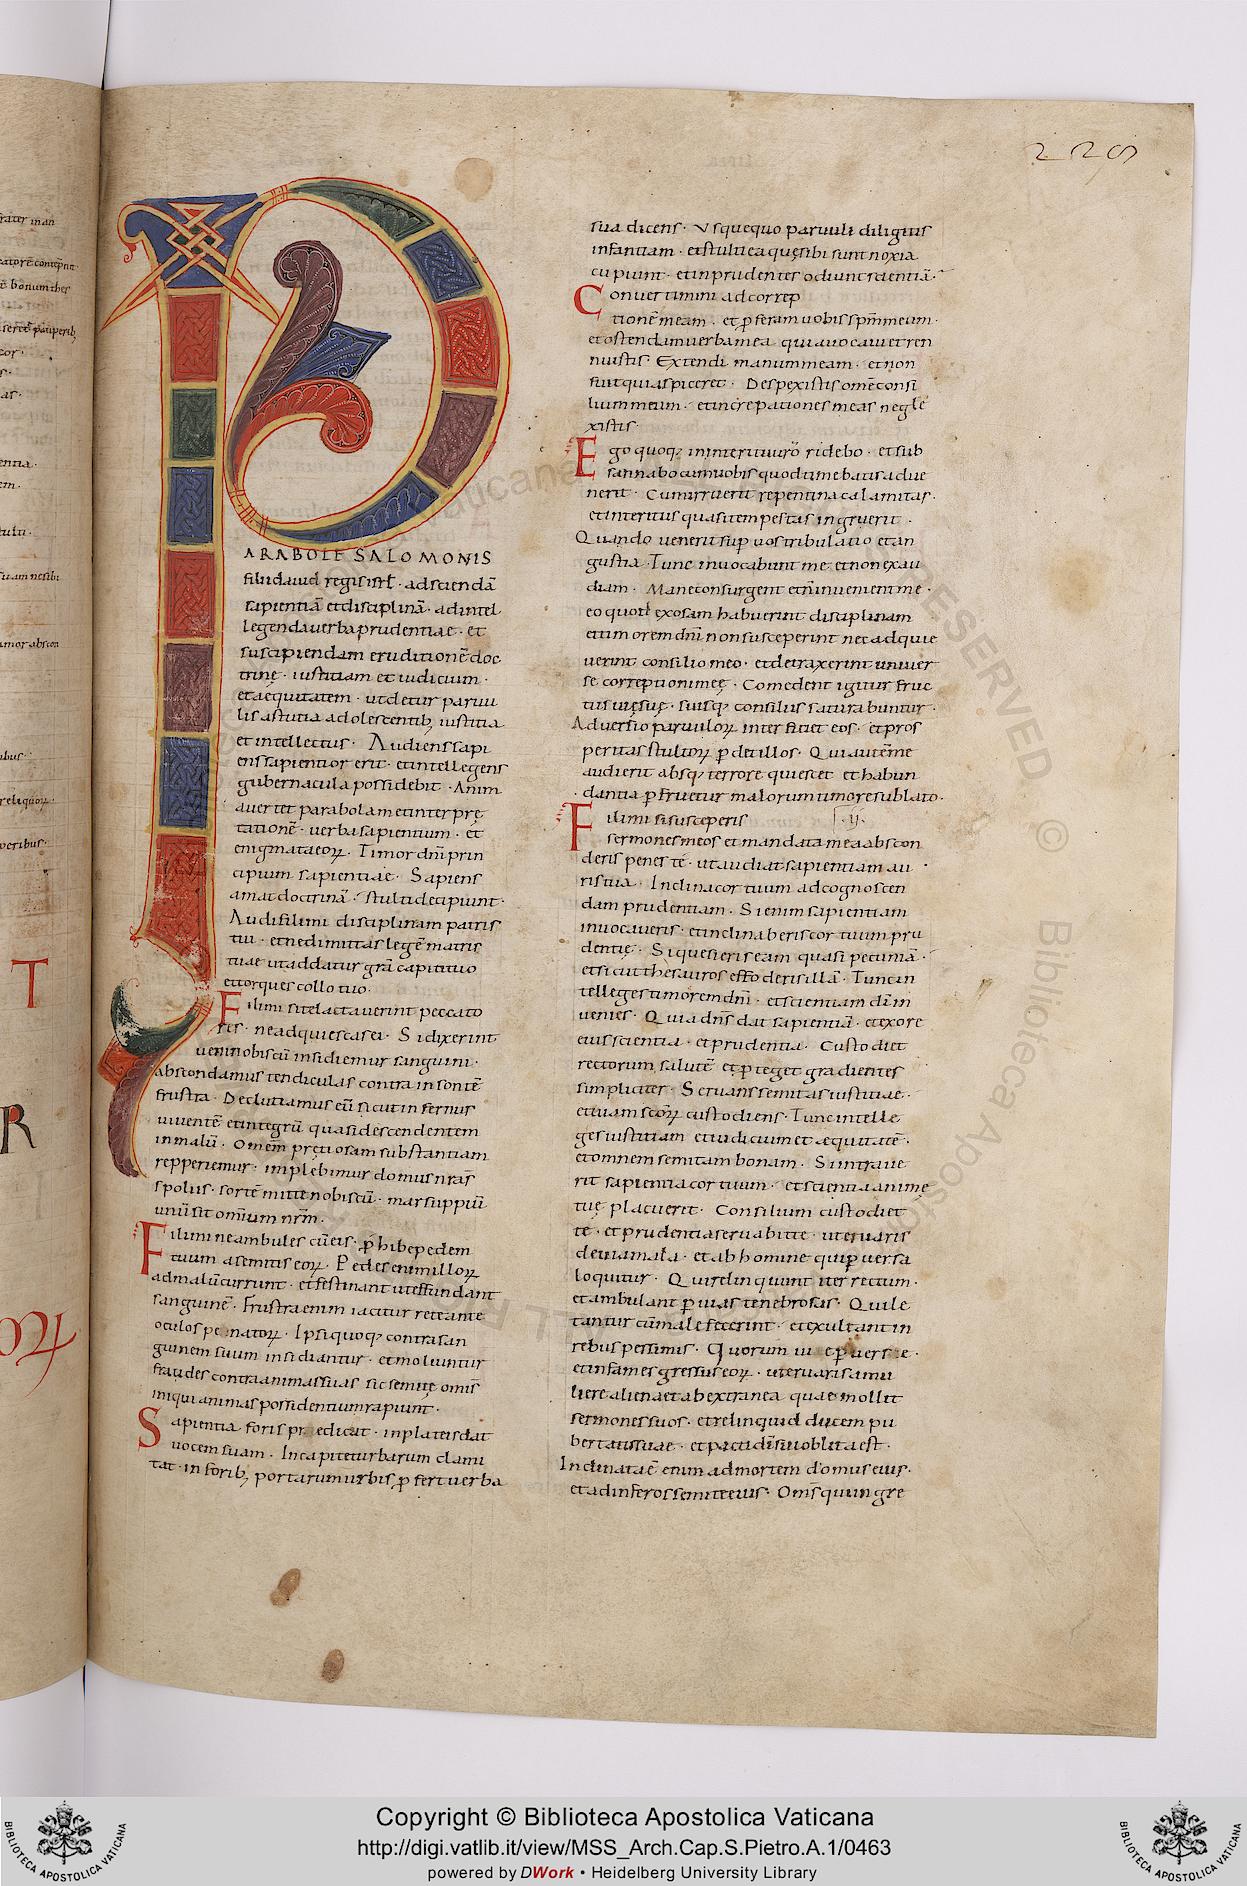 229
PARABOLE SALOMONIS
filii dauid regis isrł · ad sciendā
sapientiā et disciplinā · ad intel
legenda uerba prudentiae · et
suscipiendam eruditionē doc
trinę · iustitiam et iudicium ·
et aequitatem · ut detur paruu
lis astutia adolescentib; iustitia
et intellectus · Audiens sapi
ens sapientior erit · et intellegens
gubernacula possidebit · Anim
auertet parabolam et interprę
tationē · uerba sapientium · et
enigmata eoꝝ · Timor dn̄i prin
cipium sapientiae · Sapiens
amat doctrinā · stulti decipiunt ·
Audi fili mi disciplinam patris
tui · et ne dimittas legē matris
tuae ut addatur gr̄a capiti tuo
et torques collo tuo ·
Fili mi si te lactauerint peccato
ris · ne adquiescas ei · Si dixerint
ueni nobiscū insidiemur sanguini ·
abscondamus tendiculas contra insontē
frustra · Declutiamus eū sicut infernus
uiuentē et integrū quasi descendentem
in malū · Omēm prętiosam substantiam
repperiemur · implebimur domus nr̄as
spoliis · sortē mitte nobiscū · marsuppiū
unū sit omīum nr̄m ·
Fili mi ne ambules cū eis · ꝓhibe pedem
tuum a semitis eoꝝ · Pedes enim illoꝝ
ad malū currunt · et festinant ut effundant
sanguinē · Frustra enim iacitur rete ante
oculos pennatoꝝ · Ipsi quoq; contra san
guinem suum insidiantur · et moliuntur
fraudes contra animas suas sic semitę omīs
iniqui animas possidentium rapiunt ·
Sapientia foris praedicat · in plateis dat
uocem suam · In capite turbarum clami
tat · in forib; portarum urbis ꝓfert uerba
sua dicens · Vsquequo paruuli diligitis
infantiam · et stulti ea quę sibi sunt noxia
cupiunt · et inprudentes odiunt scientiā ·
Conuertimini ad correp
tionē meam · et ꝓferam uobis sp̄m meum ·
et ostendam uerba mea quia uocaui et ren
nuistis Extendi manum meam · et non
fuit qui aspiceret · Despexistis omē consi
lium meum · et increpationes meas negle
xistis ·
Ego quoq; in interitu uro᷑ ridebo · et sub
sannabo cum uobis quod timebatis adue
nerit · Cum irruerit repentina calamitas ·
et interitus quasi tempestas ingruerit ·
Quando uenerit sup̱ uos tribulatio et an
gustia · Tunc inuocabunt me et non exau
diam · Mane consurgent et n̄ inuenient me ·
eo quod exosam habuerint disciplinam
et timorem dn̄i non susceperint nec adquie
uerint consilio meo · et detraxerint uniuer
se correptioni meę · Comedent igitur fruc
tus uię suę · suisq; consiliis saturabuntur ·
Aduersio paruuloꝝ interficiet eos · et pros
peritas stultoꝝ ꝑdet illos · Qui autē me
audierit absq; terrore quiescet et habun
dantia ꝑfruetur malorum timore sublato ·
Fili mi si susceperis · ij ·
sermones meos et mandata mea abscon
deris penes te · ut audiat sapientiam au
ris tua · Inclina cor tuum ad cognoscen
dam prudentiam · Si enim sapientiam
inuocaueris · et inclinaberis cor tuum pru
dentię · Si quesieris eam quasi pecuniā ·
et sicut thesauros effoderis illā · Tunc in
telleges timorem dn̄i · et scientiam dī in
uenies · Quia dn̄s dat sapientiā · et ex ore
eius scientia · et prudentia · Custodiet
rectorum salutē et ꝓteget gradientes
simpliciter · Seruans semitas iustitiae ·
et uiam sc̄oꝝ custodiens · Tunc intelle
ges iustitiam et iudicium et aequitatē ·
et omnem semitam bonam · Si intraue
rit sapientia cor tuum · et scientia animę
tuę placuerit · Consilium custodiet
te · et prudentia seruabit te · ut eruaris
de uia mala · et ab homine qui ꝑuersa
loquitur · Qui relinquunt iter rectum ·
et ambulant ꝑ uias tenebrosas · Qui lę
tantur cū male fecerint · et exultant in
rebus pessimis · Quorum uiae ꝑuersae ·
et infames gressus eoꝝ · ut eruaris a mu
liere aliena et ab extranea quae mollit
sermones suos · et relinquid ducem pu
bertatis suae · et pacti dī sui oblita est ·
Inclinata ē enim ad mortem domus eius ·
et ad inferos semitę eius · Oms̄ qui ingre
T
R
Copyright © Biblioteca Apostolica Vaticana
http://digi.vatlib.it/view/MSS_Arch.Cap.S.Pietro.A.1/0463
powered by DWork • Heidelberg University Library
BIBLIOTECA APOSTOLICA VATICANA
BIBLIOTECA APOSTOLICA VATICANA